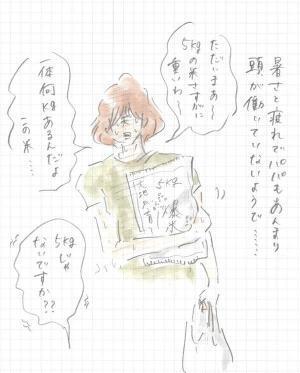 暑さと疲れでパパもあんまり
頭が働いていないようで……
ただいまあ〜
5kgの米さすがに
重いわ〜
一体何kgあるんだよ
この米……
5kg
5kgじゃ
ないですか??